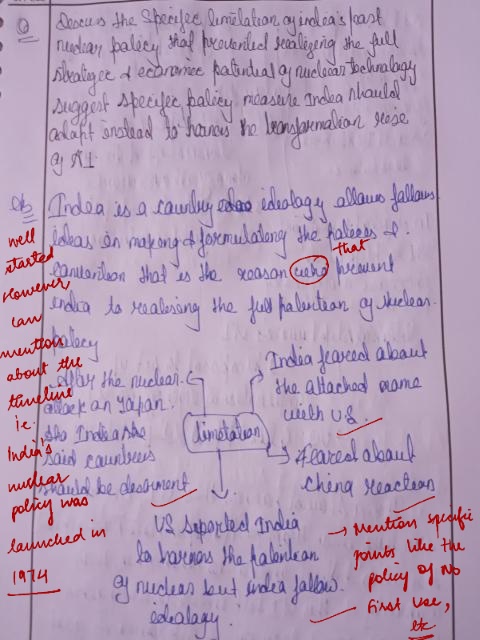 Q Descuss the Specific limitation of india's past
nuclear policy that prevented realizeing the full
strategec & economic potential of nuclear technology
suggest specifec policy measure India should
adopt enstead to harness the transformation
of AI
India is a country ideology allows fallows
Ideas in making & formulationg the policies &
that is the reason who prevent
that
india to realising the full of Nuclear
policy
well
started
However
can
mention
about the
timeline
i.e.
India's
nuclear
policy was
launched in
1974
After the nuclear
attack on Japan.
the India the
said countries
should be
limetation
India feared about
the attached name
with US.
feared about
china reaction
US India
to harness the
of nuclear but india fallow
ideology
→ Mention specific
points like the
policy of No
First Use,
etc